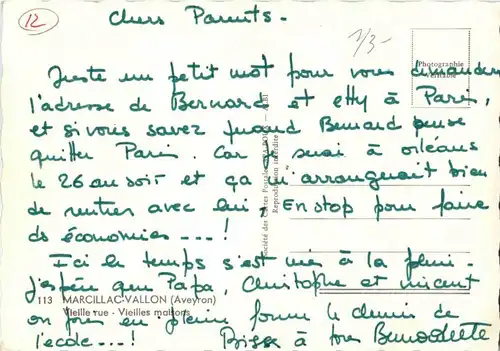 12
Chers Parents -
1/3-
Photographie
véritable
Juste un petit mot pour vous demander
l'adresse de Bernard et Etty à Paris,
et si vous savez quand Bernard pense
quitter Paris. Car je serai à orléans
le 26 au soir et ça m'arrangerait bien
de rentrer avec lui, En stop pour faire
ds économies ---!
Ici le temps s'est mis à la pluie.
j'espère que Papa, Christophe et vincent
on pris en pleine forme le chemin de
l'ecole ---!
Bises à tous Bernadette
113 MARCILLAC-VALLON (Aveyron)
Vieille rue - Vieilles maisons
Société des Cartes Postales
Reproduction interdite